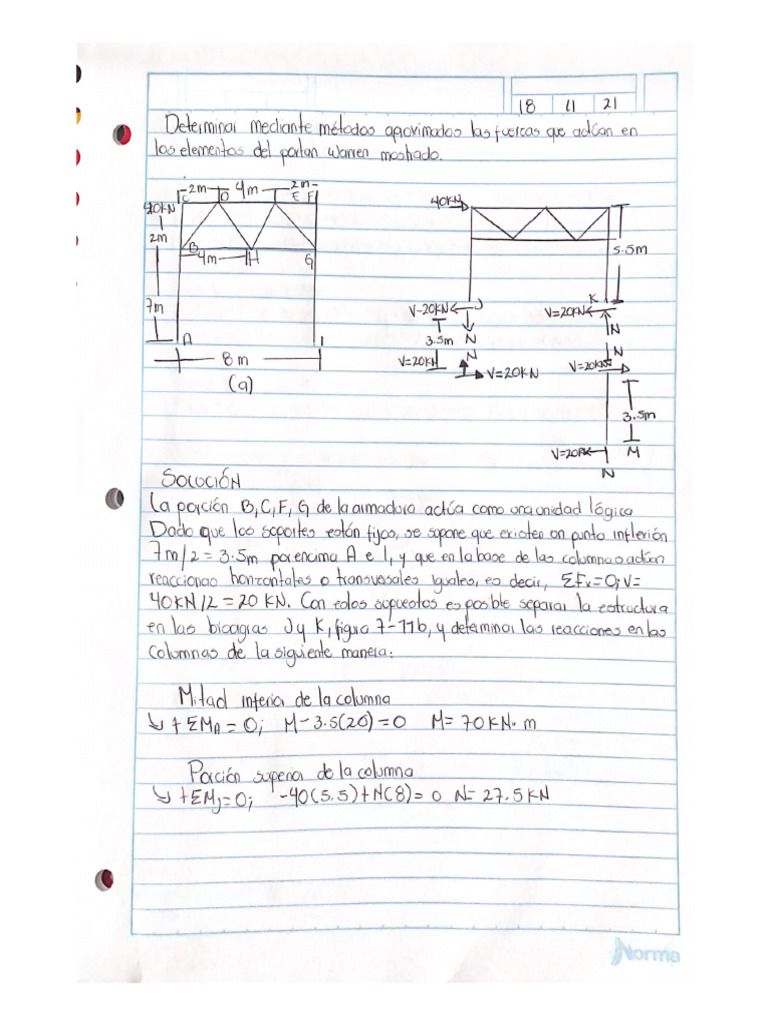 18 11 21
Determinar mediante métodos aproximados las fuerzas que actúan en
los elementos del portan Warren mostrado.
2m 4m 2m
C D E F
40KN
2m
B 4m H G
7m
A I
8 m
(a)
40KN
5.5m
V-20KN J K
V=20KN
3.5m N N
V=20KN N N V=20KN
V=20KN
3.5m
V=20K M
N
SOLUCIÓN
La porción B, C, F, G de la armadura actúa como una unidad lógica
Dado que los soportes están fijos, se supone que existen un punto inflexión
7m/2 = 3.5m por encima A e I, y que en la base de las columnas actúan
reacciones horizontales o transversales iguales, es decir, ΣFx=0; V=
40KN/2=20 KN. Con estos supuestos es posible separar la estructura
en las bisagras J y K, figura 7-11b, y determinar las reacciones en las
columnas de la siguiente manera:
Mitad inferia de la columna
↳ + ΣMA = 0; M-3.5(20)=0 M= 70KN·m
Porción superior de la columna
↳ +ΣMJ=0; -40(5.5)+N(8)= 0 N= 27.5KN
Norma